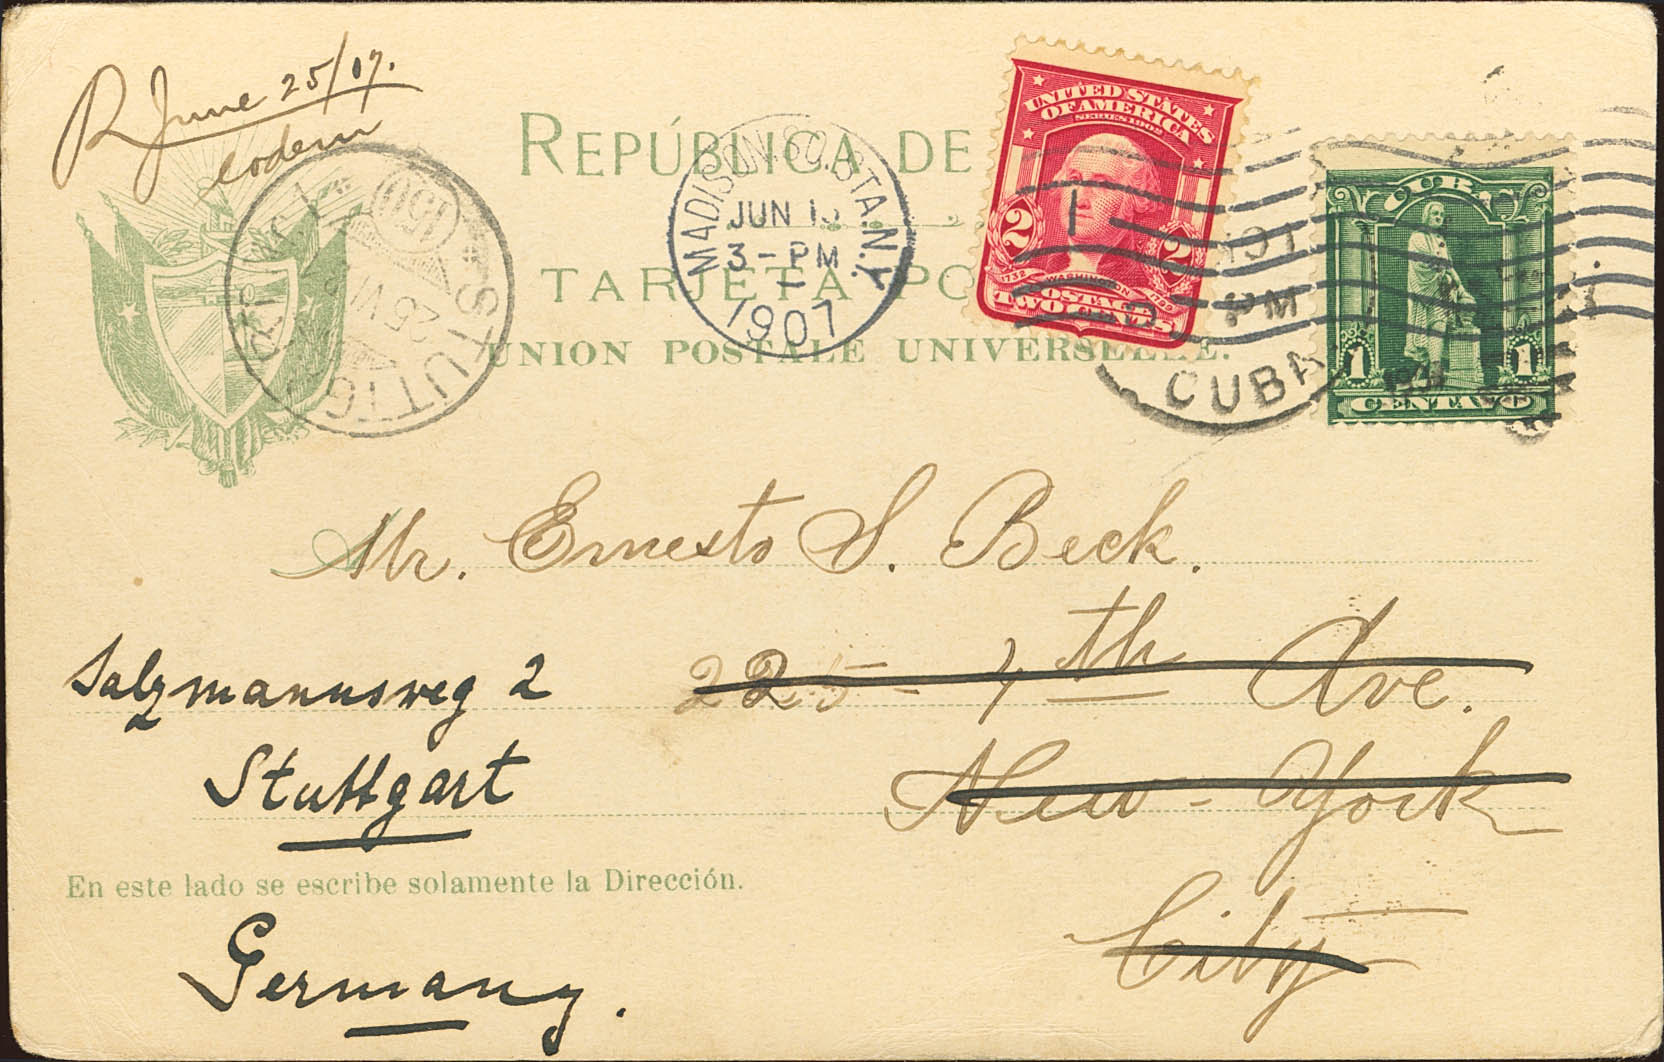 R June 25/07.
eodem
REPÚBLICA DE
TARJETA PO
UNION POSTALE UNIVERSELLE.
MADISON SQ. STA. N.Y.
JUN 1
3-PM
1907
STUTTG
25 VI
UNITED STATES
OF AMERICA
SERIES 1902
2 2
1732 WASHINGTON 1799
POSTAGE
TWO CENTS
PM
CUBA
CUBA
1 1
CENTAVO
Mr. Ernesto S. Beck.
225 - 4th Ave.
New-York
City
Salzmannsweg 2
Stuttgart
En este lado se escribe solamente la Dirección.
Germany.